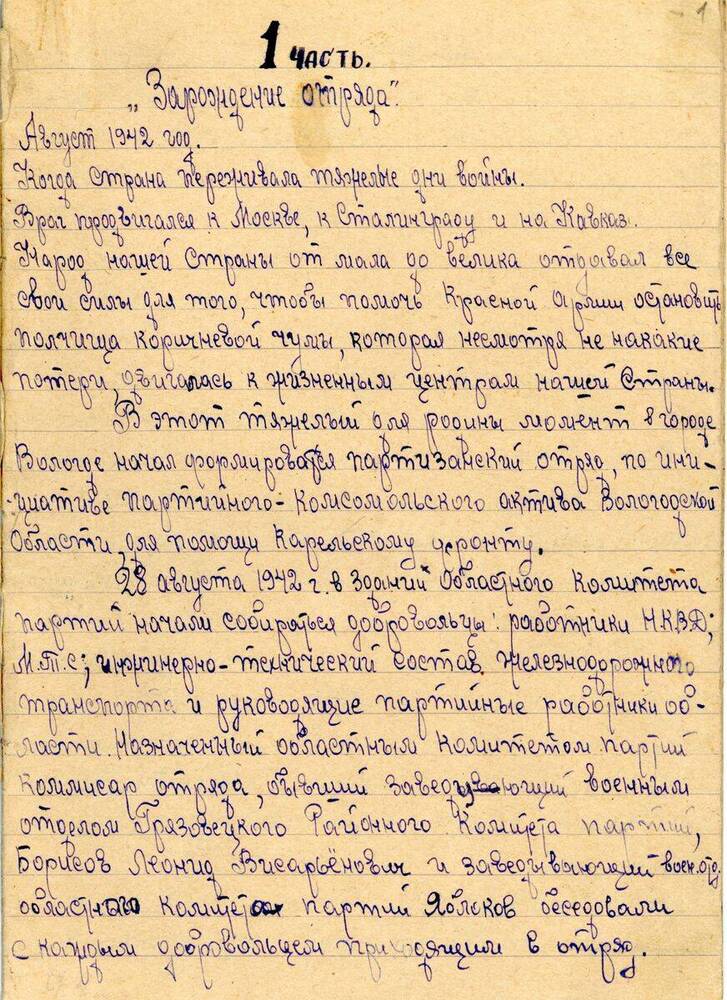 1
1 ЧАСТЬ.
„Зарождение отряда".
Август 1942 год.
Когда страна переживала тяжелые дни войны.
Враг продвигался к Москве, к Сталинграду и на Кавказ.
Народ нашей Страны от мала до велика отдавал все
свои силы для того, чтобы помочь Красной Армии остановить
полчища коричневой чумы, которая несмотря не накакие
потери, двигалась к жизненным центрам нашей Страны.
В этот тяжелый для родины момент в городе
Вологде начал формироватся партизанский отряд, по ини-
-циативе партийного-комсомольского актива Вологодской
Области, для помощи Карельскому фронту.
28 августа 1942 г. в здании Областного Комитета
партий начали собираться добровольцы: работники Н.К.В.Д;
М.Т.С; инжинерно-технический состав железнодорожного
транспорта и руководящие партийные работники об-
ласти. Назначенный областным комитетом партий
коммисар отряда, бывший заведующий военным
отделом Грязовецкого Районного Комитета партий,
Борисов Леонид Висарьёнович и заведывающий воен.отд.
областного комитета партий Яблоков беседовали
с каждым добровольцем приходящим в отряд.